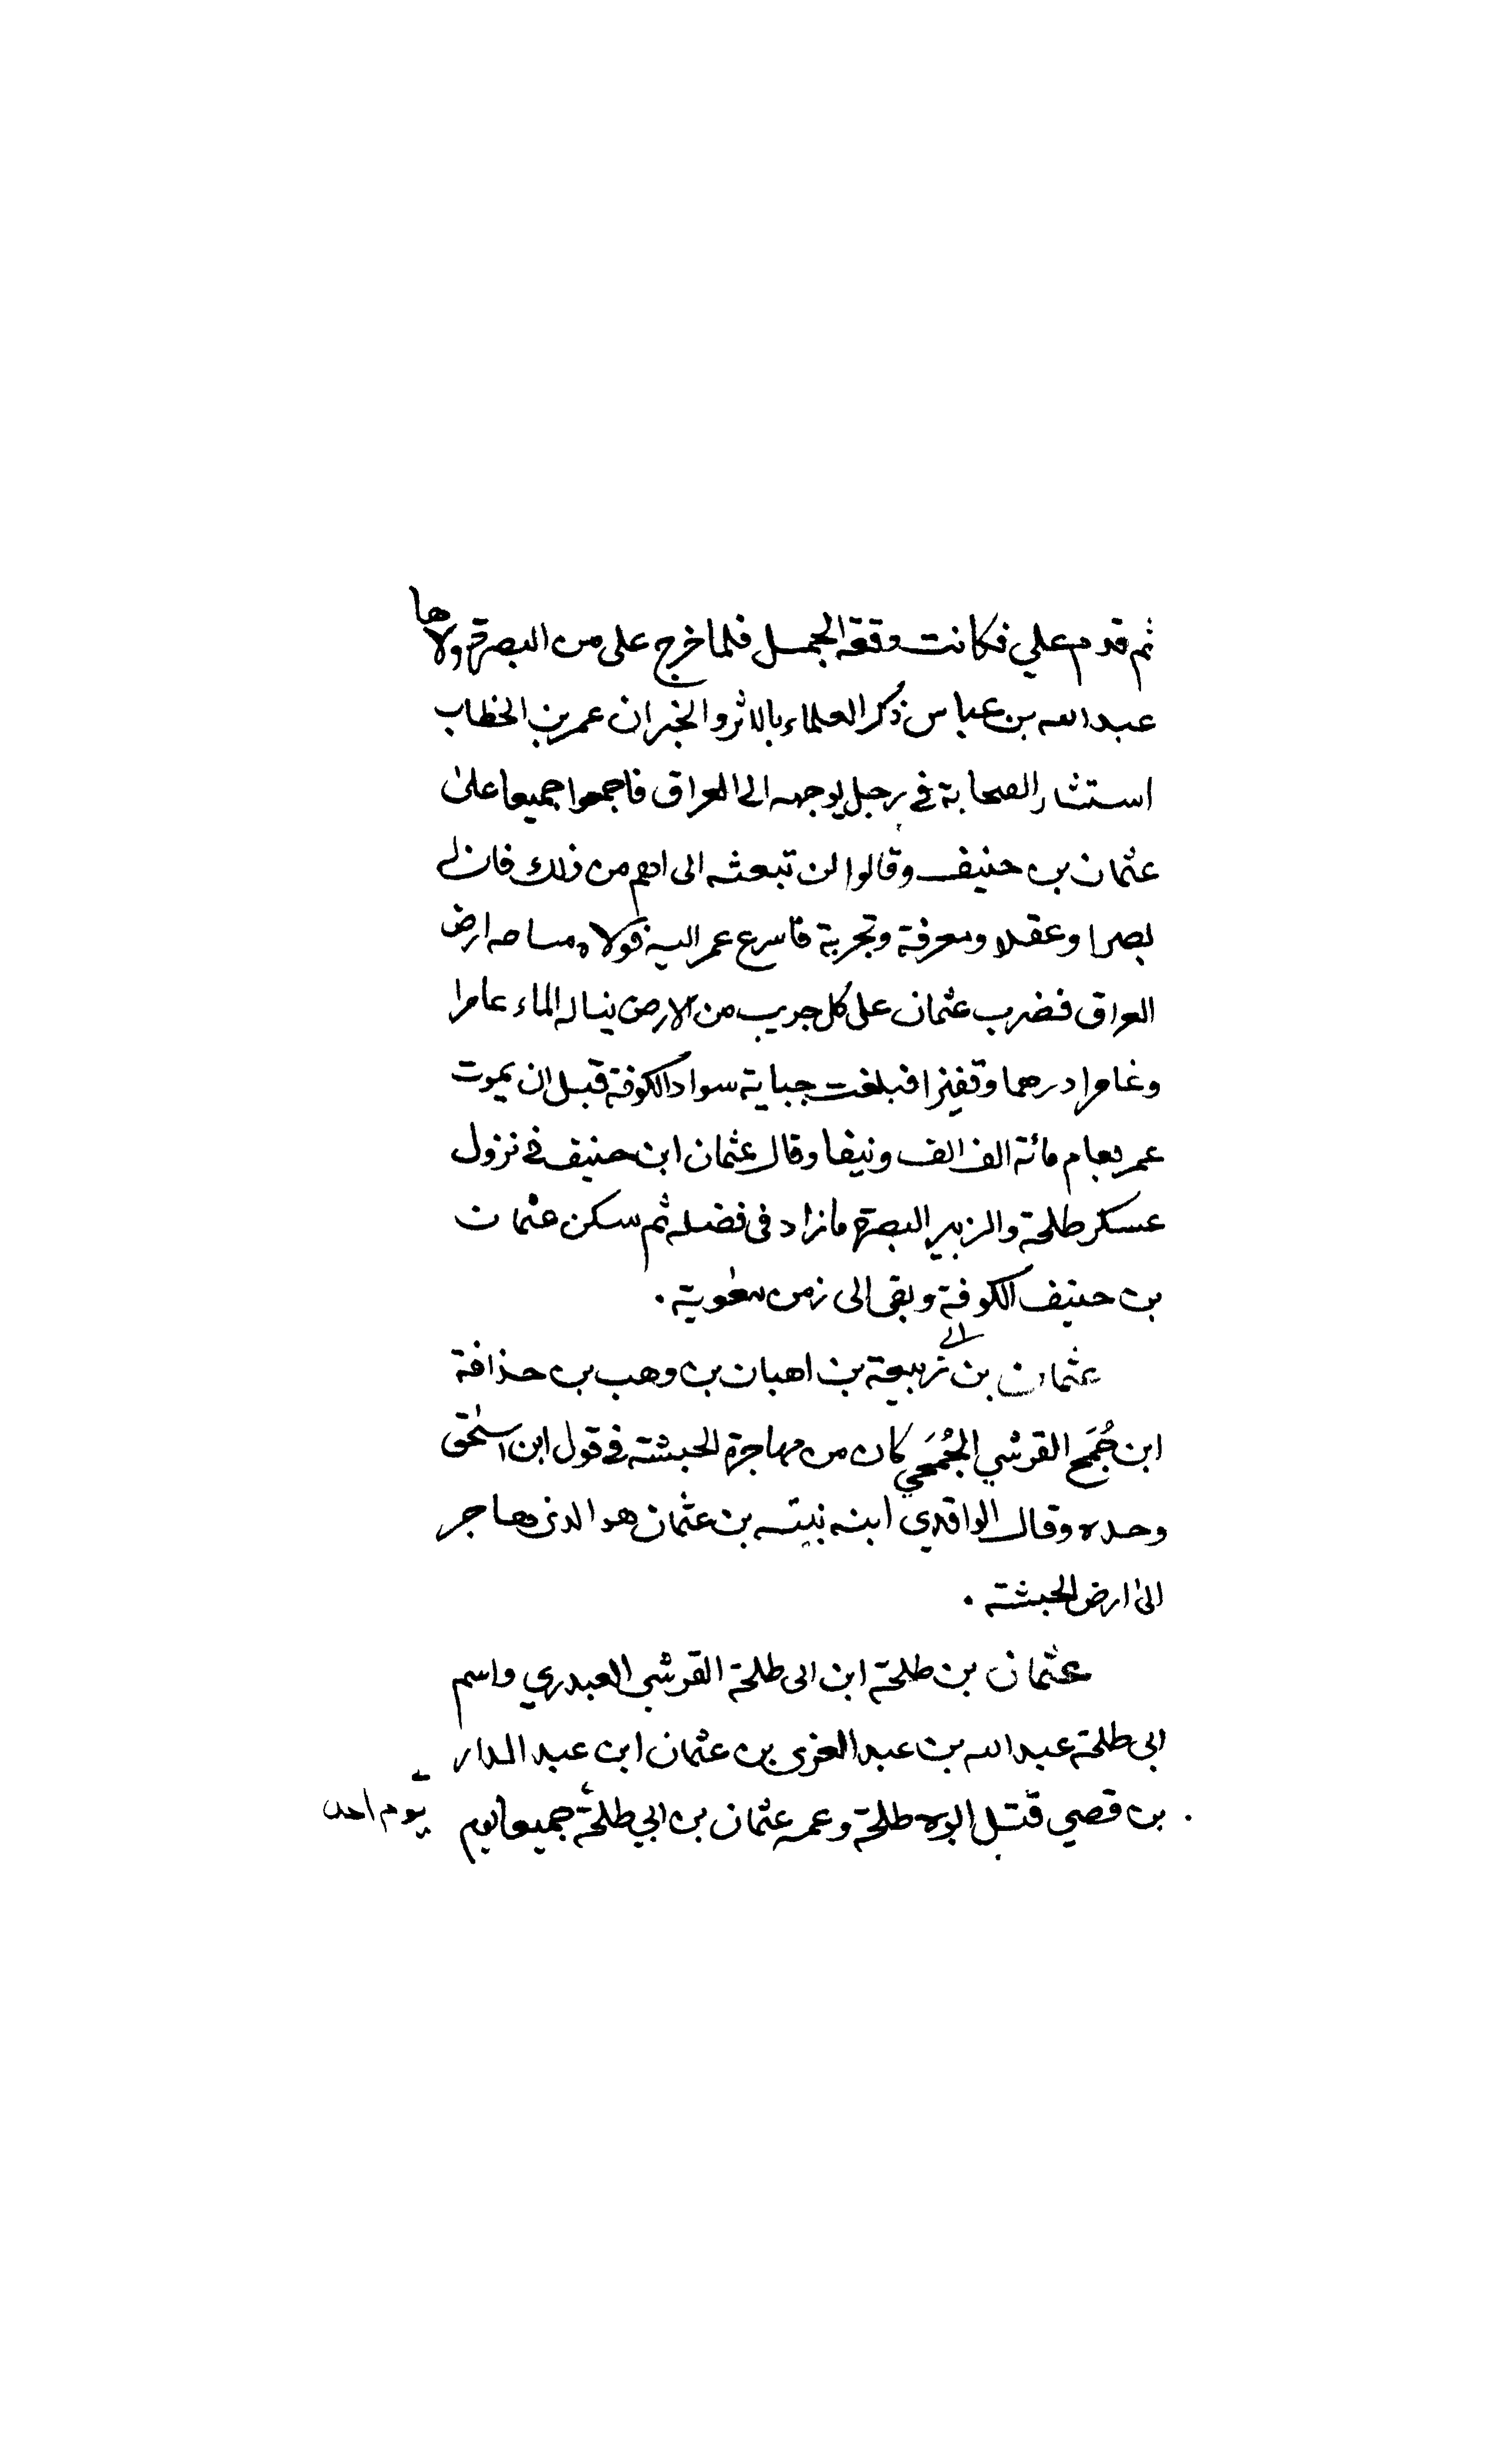 ثم قدم علي فكانت وقعة الجمل فلما خرج على من البصرة ولاها
عبد الله بن عباس ذكر العلماء بالاثر والخبر ان عمر بن الخطاب
استشار الصحابة في رجل يوجهه الى العراق فاجمعوا جميعا على
عثمان بن حنيف وقالوا لن تبعثه الى اهم من ذلك فان له
بصرا وعقلا ومعرفة وتجربة فاسرع عمر اليه فولاه مساحه ارض
العراق فضرب عثمان على كل جريب من الارض يناله الماء عامرا
وغامرا درهما وقفيزا فبلغت جباية سواد الكوفة قبل ان يموت
عمر بعام مائة الف الف ونيفا وقال عثمان ابن حنيف في نزول
عسكر طلحة والزبير البصرة ما زاد فى فضله ثم سكن عثمان
بن حنيف الكوفة وبقى الى زمن معوية .
عثمان بن ربيعة بن اهبان بن وهب بن حذافة
ابن جُمَح القرشي الجُمَحي كان من مهاجرة الحبشة في قول ابن اسحٰق
وحده وقال الواقدي ابنه نبيه بن عثمان هو الذى هاجر
الى ارض الحبشة .
عثمان بن طلحة ابن ابى طلحة القرشي العبدري واسم
ابى طلحة عبد الله بن عبد العزى بن عثمان ابن عبد الدار
بن قصي قتل ابوه طلحة وعمه عثمان بن ابي طلحة جميعا يوم يوم احد